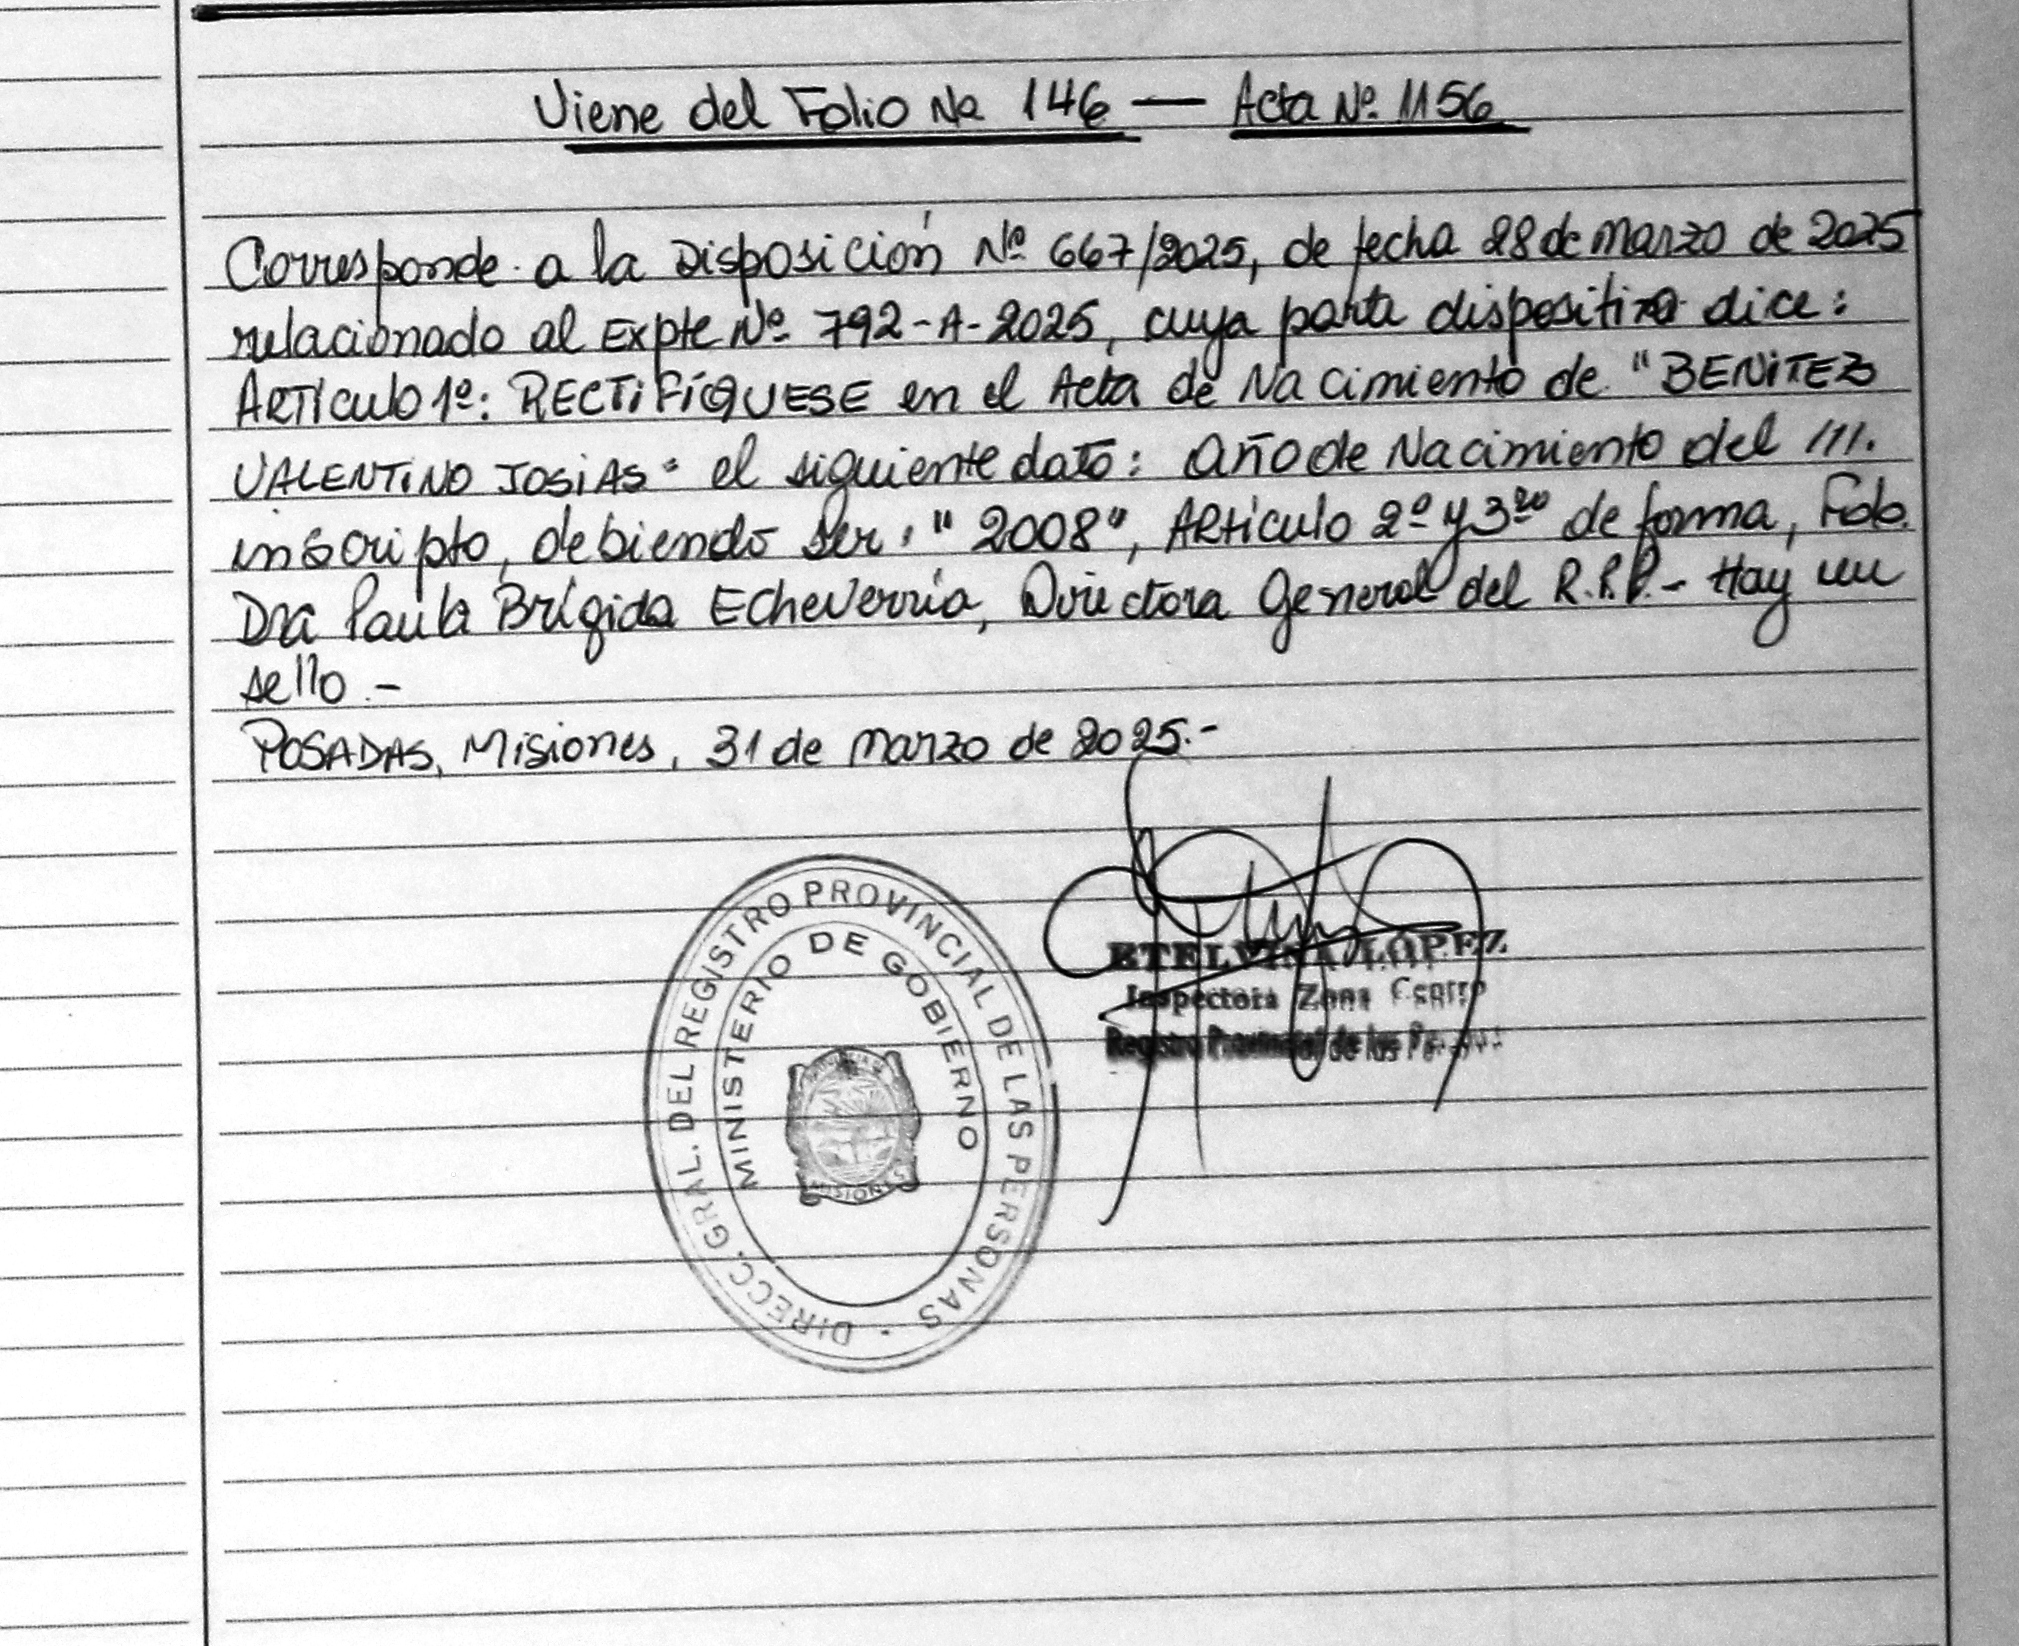 Viene del Folio No 146 — Acta Nº 1156
Corresponde a la Disposición Nº 667/2025, de fecha 28 de marzo de 2025
relacionado al Expte Nº 792-A-2025, cuya parte dispositiva dice:
ARTÍCULO 1º: RECTIFÍQUESE en el Acta de Nacimiento de "BENITEZ
VALENTINO JOSIAS" el siguiente dato: año de Nacimiento del ///.
inscripto, debiendo ser: "2008", Artículo 2º y 3ro de forma, Fdo.
Dra Paula Brígida Echeverría, Directora General del R.P.P.- Hay un
sello.-
POSADAS, Misiones, 31 de marzo de 2025.-
DIRECC. GRAL. DEL REGISTRO PROVINCIAL DE LAS PERSONAS
MINISTERIO DE GOBIERNO
MISIONES
ETELVINA LOPEZ
Inspectora Zona Centro
Registro Provincial de las